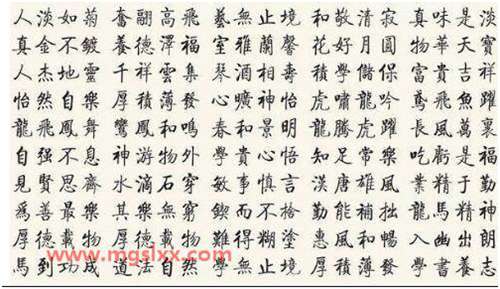 人淡如菊 奮翮高飛 藝無止境 和敬清寂 真味是淡
真金不鍍 養德澤福 室雅蘭馨 花好月圓 物華天寶
人杰地靈 千祥雲集 琴酒相壽 積學儲保 富貴吉祥
怡然自樂 厚積薄發 心曠神怡 虎嘯龍吟 鳶飛魚躍
龍飛鳳舞 鸞鳳和鳴 春和景明 龍騰虎躍 長風萬裏
自强不息 神游物外 學貴心悟 知足常樂 吃虧是福
見賢思齊 水滴石穿 敏事慎言 漢唐雄風 業精于勤
爲善最樂 其樂無窮 鍥而不捨 勤能補拙 龍馬精神
厚德載物 厚德載物 難得糊塗 惠風和暢 入幽出朗
馬到功成 道法自然 學無止境 厚積薄發 學書養志
www.mgslxx.com www.mgslxx.com